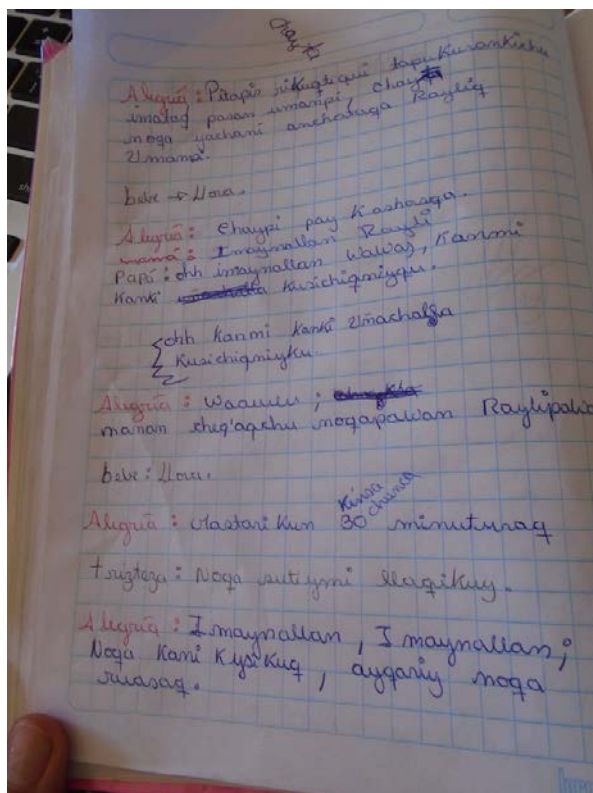 Chay
Alegria: Pitapis rikuqtiqui tapukurankichu
imataq pasan umanpi, chay
noqa yachani anchataga Rayliq
Umanta.
bebe → llora.
Alegria: Chaypi pay Kashasqa.
mamá: Imaynallan Rayli
Papi: ohh imaynallan wawas, Kanmi
Kanki Kusichiqniyqu.
ohh Kanmi Kanki Umachalla
Kusichiqniyku.
Alegria: Waauuu;
manam cheq'aqchu noqapawan Raylipawa
bebe: llora.
Kinsa
chunca
Alegria: 30 minutunaq
trizteza: Noqa sutiymi llaqikuy.
Alegria: Imaynallan, Imaynallan;
Noqa Kani Kusikuq, ayqariy noqa
ruasaq.